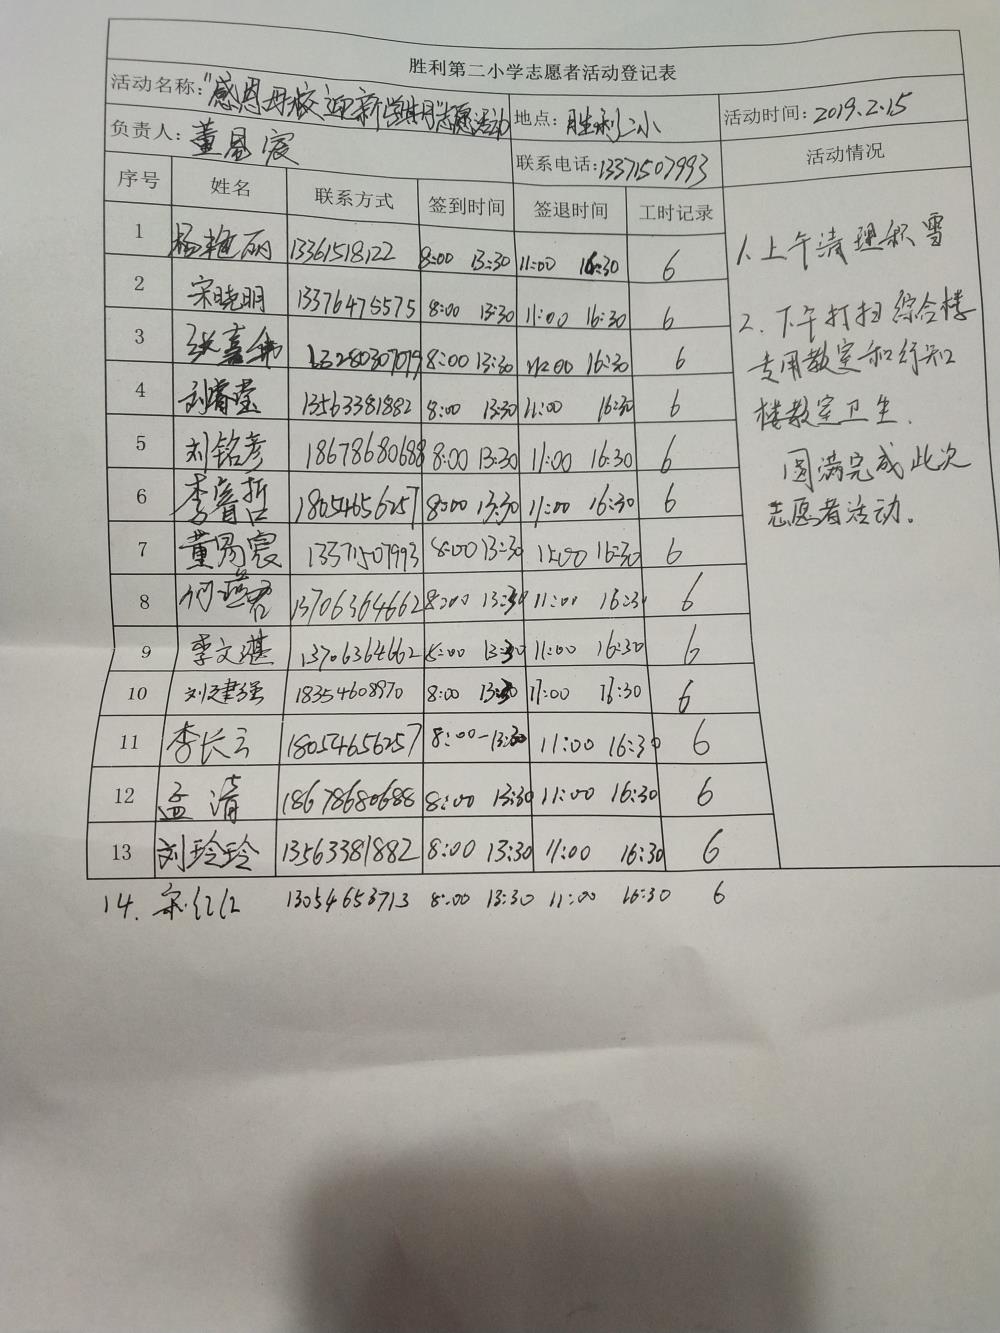 胜利第二小学志愿者活动登记表
活动名称："感恩母校 迎新学期"志愿活动 地点：胜利二小 活动时间：2019.2.15
负责人：董晏宸 联系电话：13371507993 活动情况
序号 姓名 联系方式 签到时间 签退时间 工时记录
1 杨艳丽 13361518122 8:00 13:30 11:00 16:30 6
2 宋晓明 13376475575 8:00 13:30 11:00 16:30 6
3 张嘉 13280307079 8:00 13:30 11:00 16:30 6
4 刘睿莹 13563381882 8:00 13:30 11:00 16:30 6
5 刘铭彦 18678680688 8:00 13:30 11:00 16:30 6
6 李睿哲 18054656257 8:00 13:30 11:00 16:30 6
7 董晏宸 13371507993 8:00 13:30 11:00 16:30 6
8 13706364662 8:00 13:30 11:00 16:30 6
9 李文湛 13706364662 8:00 13:30 11:00 16:30 6
10 刘建强 18354608970 8:00 13:30 11:00 16:30 6
11 李长云 18054656257 8:00-13:30 11:00 16:30 6
12 孟清 18678680688 8:00 13:30 11:00 16:30 6
13 刘玲玲 13563381882 8:00 13:30 11:00 16:30 6
14. 宋红红 13054653713 8:00 13:30 11:00 16:30 6
1.上午清理积雪
2.下午打扫综合楼
专用教室和行知
楼教室卫生.
圆满完成此次
志愿者活动。